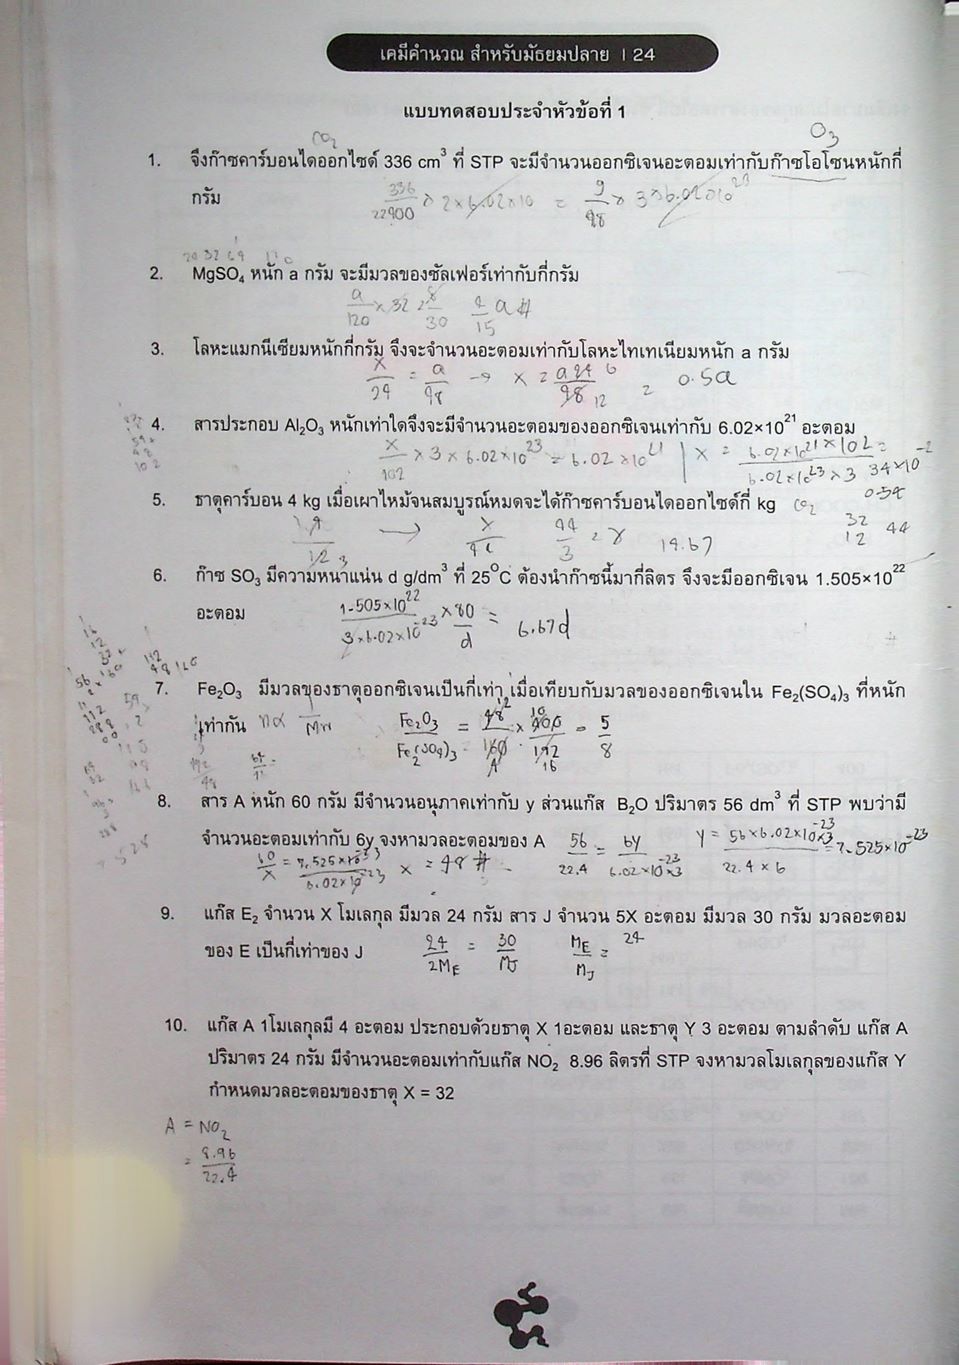 เคมีคำนวณ สำหรับมัธยมปลาย | 24
แบบทดสอบประจำหัวข้อที่ 1
CO₂ O₃
1. จึงก๊าซคาร์บอนไดออกไซด์ 336 cm³ ที่ STP จะมีจำนวนออกซิเจนอะตอมเท่ากับก๊าซโอโซนหนักกี่
กรัม
336/22400 × 2 × 6.02×10 = g/48 × 3×6.02×10²³
2. MgSO₄ หนัก a กรัม จะมีมวลของซัลเฟอร์เท่ากับกี่กรัม
a/120 × 32 = 8/30 4/15 a #
3. โลหะแมกนีเซียมหนักกี่กรัม จึงจะจำนวนอะตอมเท่ากับโลหะไทเทเนียมหนัก a กรัม
x/24 = a/48 → x = a 24/48 = 0.5a
4. สารประกอบ Al₂O₃ หนักเท่าใดจึงจะมีจำนวนอะตอมของออกซิเจนเท่ากับ 6.02×10²¹ อะตอม
x/102 × 3 × 6.02×10²³ = 6.02×10²¹ | x = 6.02×10²¹×102/6.02×10²³×3 = 34×10⁻²
0.34
5. ธาตุคาร์บอน 4 kg เมื่อเผาไหม้จนสมบูรณ์หมดจะได้ก๊าซคาร์บอนไดออกไซด์กี่ kg CO₂
4/12 → x/44 44/3 = x 14.67 32 12 44
6. ก๊าซ SO₃ มีความหนาแน่น d g/dm³ ที่ 25°C ต้องนำก๊าซนี้มากี่ลิตร จึงจะมีออกซิเจน 1.505×10²²
อะตอม 1.505×10²²/3×6.02×10⁻²³ × 80/d = 6.67d
7. Fe₂O₃ มีมวลของธาตุออกซิเจนเป็นกี่เท่า เมื่อเทียบกับมวลของออกซิเจนใน Fe₂(SO₄)₃ ที่หนัก
เท่ากัน n α 1/Mw Fe₂O₃/Fe₂(SO₄)₃ = 48/160 × 400/192 = 5/8
8. สาร A หนัก 60 กรัม มีจำนวนอนุภาคเท่ากับ y ส่วนแก๊ส B₂O ปริมาตร 56 dm³ ที่ STP พบว่ามี
จำนวนอะตอมเท่ากับ 6y จงหามวลอะตอมของ A 56/22.4 = 6y/6.02×10⁻²³×3 y = 56×6.02×10⁻²³×3/22.4×6 = 7.525×10⁻²³
60/x = 7.525×10⁻²³/6.02×10⁻²³ x = 48 #
9. แก๊ส E₂ จำนวน X โมเลกุล มีมวล 24 กรัม สาร J จำนวน 5X อะตอม มีมวล 30 กรัม มวลอะตอม
ของ E เป็นกี่เท่าของ J 24/2M_E = 30/M_J M_E/M_J = 24
10. แก๊ส A 1โมเลกุลมี 4 อะตอม ประกอบด้วยธาตุ X 1อะตอม และธาตุ Y 3 อะตอม ตามลำดับ แก๊ส A
ปริมาตร 24 กรัม มีจำนวนอะตอมเท่ากับแก๊ส NO₂ 8.96 ลิตรที่ STP จงหามวลโมเลกุลของแก๊ส Y
กำหนดมวลอะตอมของธาตุ X = 32
A = NO₂
= 8.96/22.4